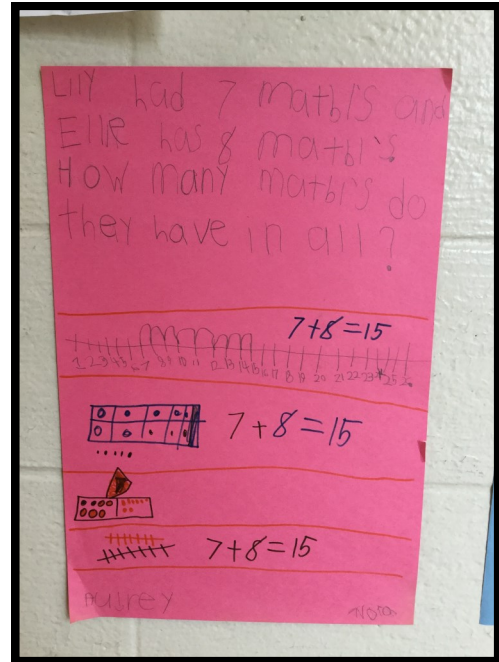 Lily had 7 matbl's and
Elle has 8 matbl's.
How many matbl's do
they have in all?
7+8=15
1 2 3 4 5 6 7 8 9 10 11 12 13 14 15 16 17 18 19 20 21 22 23 24 25 26
7+8=15
7+8=15
Aubrey